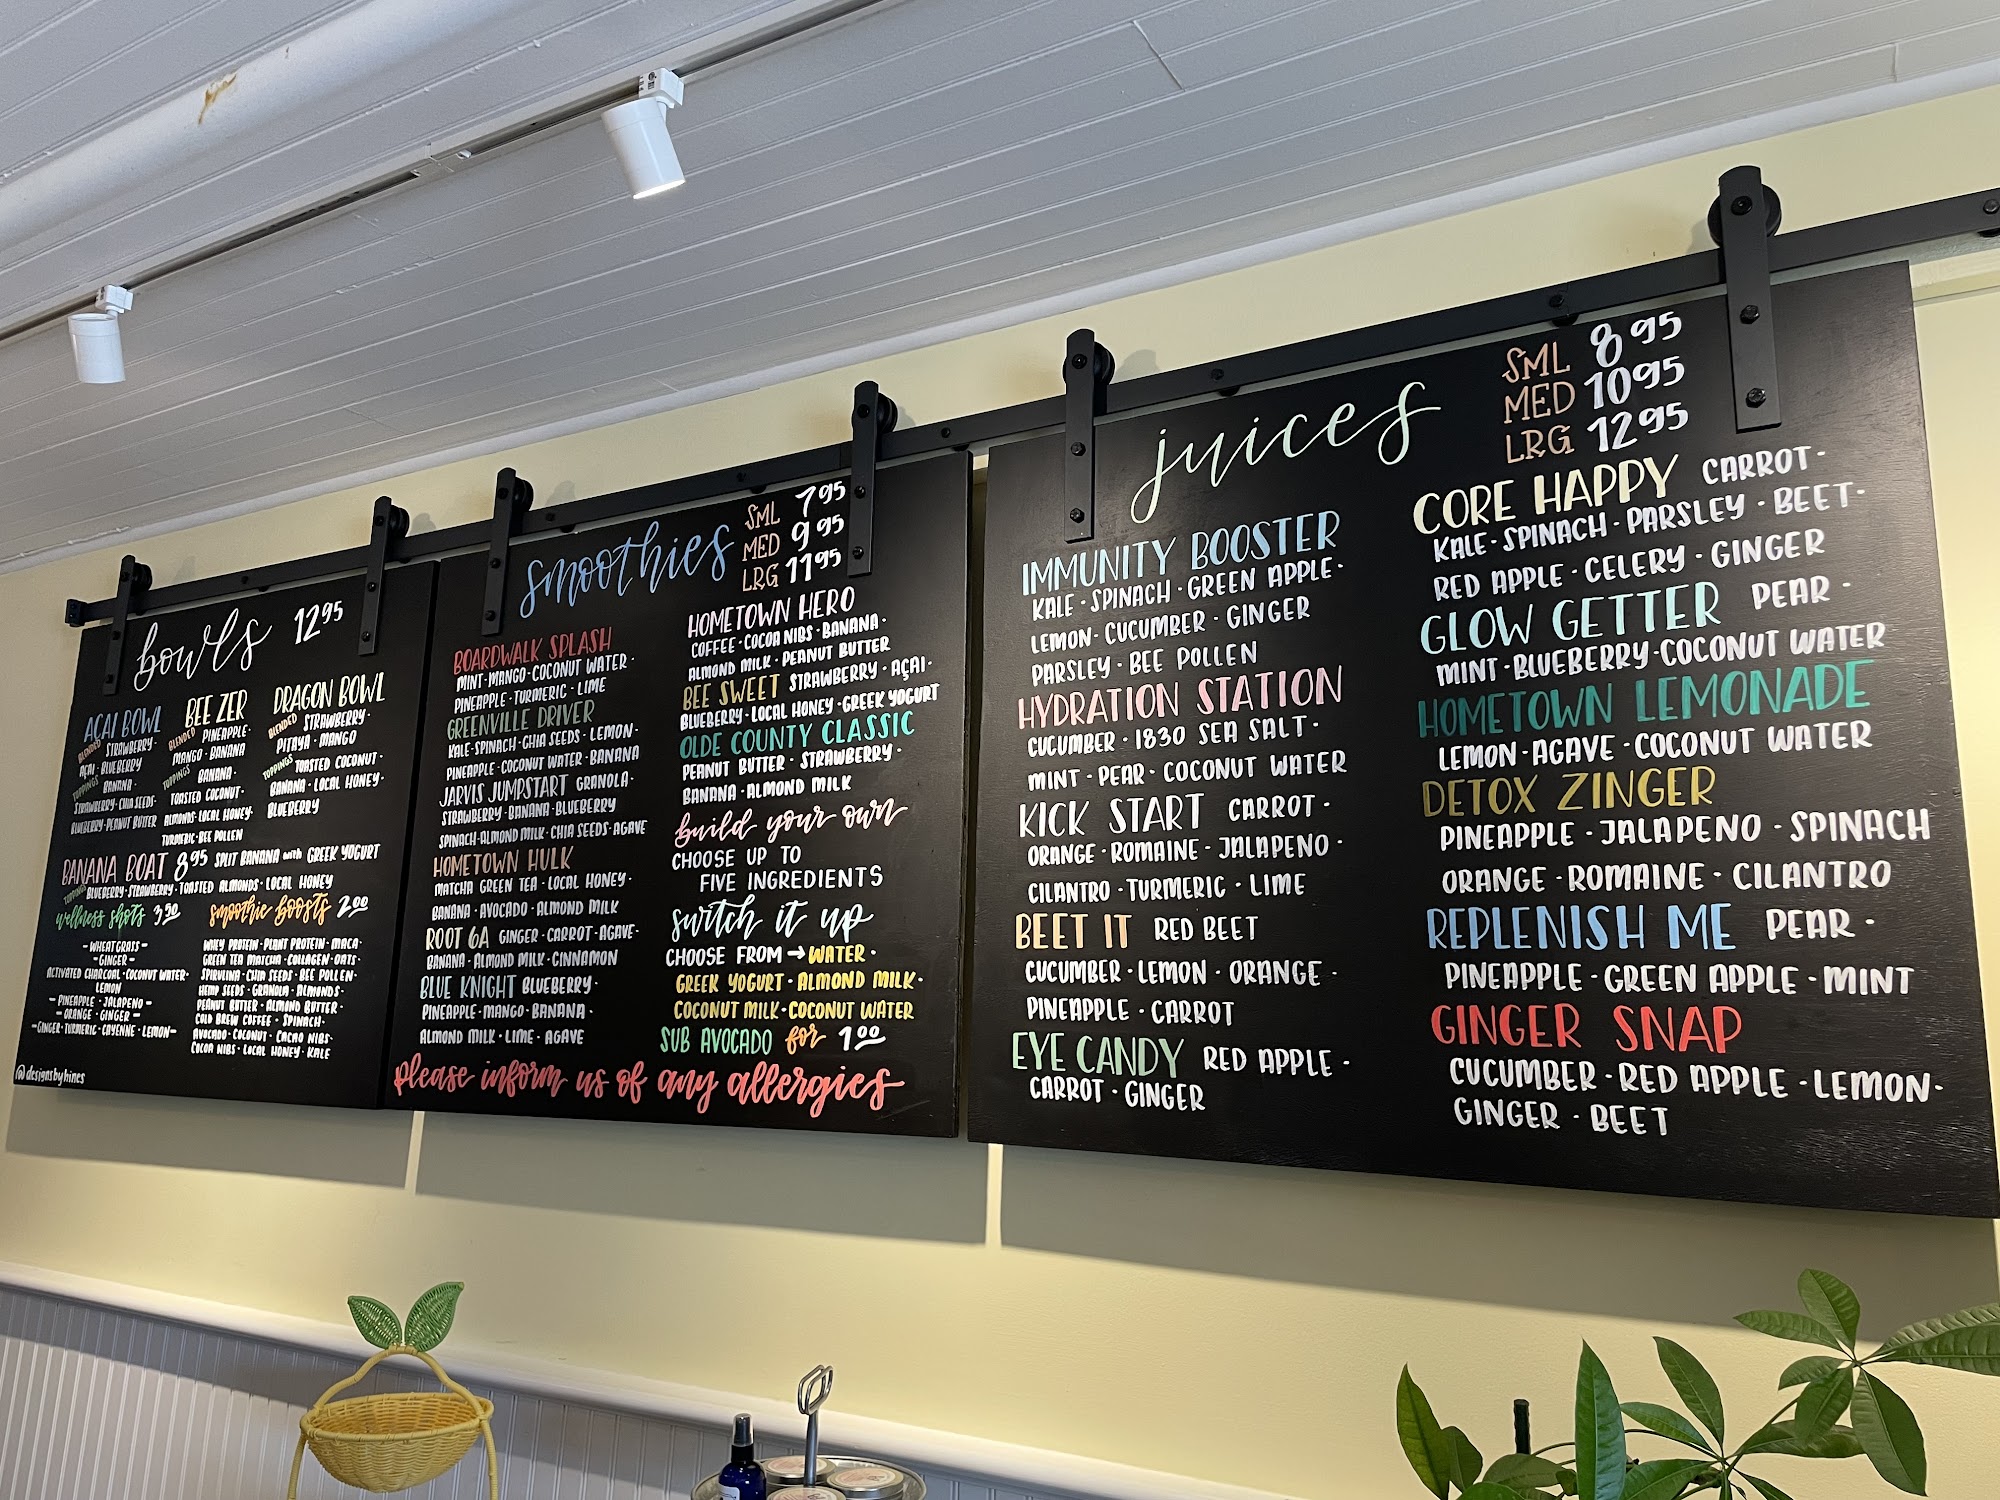 bowls 12.95
AÇAI BOWL
BLENDED STRAWBERRY·
AÇAI·BLUEBERRY
TOPPINGS BANANA·
STRAWBERRY·CHIA SEEDS·
BLUEBERRY·PEANUT BUTTER
BEE ZER
BLENDED PINEAPPLE·
MANGO·BANANA
TOPPINGS BANANA·
TOASTED COCONUT·
ALMONDS·LOCAL HONEY·
TURMERIC·BEE POLLEN
DRAGON BOWL
BLENDED STRAWBERRY·
PITAYA·MANGO
TOPPINGS TOASTED COCONUT·
BANANA·LOCAL HONEY·
BLUEBERRY
BANANA BOAT 8.95 SPLIT BANANA with GREEK YOGURT
TOPPINGS BLUEBERRY·STRAWBERRY·TOASTED ALMONDS·LOCAL HONEY
wellness shots 3.50
-WHEATGRASS-
-GINGER-
ACTIVATED CHARCOAL·COCONUT WATER·
LEMON
-PINEAPPLE·JALAPENO-
-ORANGE·GINGER-
-GINGER·TURMERIC·CAYENNE·LEMON-
smoothie boosts 2.00
WHEY PROTEIN·PLANT PROTEIN·MACA·
GREEN TEA MATCHA·COLLAGEN·OATS·
SPIRULINA·CHIA SEEDS·BEE POLLEN·
HEMP SEEDS·GRANOLA·ALMONDS·
PEANUT BUTTER·ALMOND BUTTER·
COLD BREW COFFEE·SPINACH·
AVOCADO·COCONUT·CACAO NIBS·
COCOA NIBS·LOCAL HONEY·KALE
@designsbyhines
smoothies
SML 7.95
MED 9.95
LRG 11.95
BOARDWALK SPLASH
MINT·MANGO·COCONUT WATER·
PINEAPPLE·TURMERIC·LIME
GREENVILLE DRIVER
KALE·SPINACH·CHIA SEEDS·LEMON·
PINEAPPLE·COCONUT WATER·BANANA
JARVIS JUMPSTART GRANOLA·
STRAWBERRY·BANANA·BLUEBERRY
SPINACH·ALMOND MILK·CHIA SEEDS·AGAVE
HOMETOWN HULK
MATCHA GREEN TEA·LOCAL HONEY·
BANANA·AVOCADO·ALMOND MILK
ROOT 6A GINGER·CARROT·AGAVE·
BANANA·ALMOND MILK·CINNAMON
BLUE KNIGHT BLUEBERRY·
PINEAPPLE·MANGO·BANANA·
ALMOND MILK·LIME·AGAVE
HOMETOWN HERO
COFFEE·COCOA NIBS·BANANA·
ALMOND MILK·PEANUT BUTTER
BEE SWEET STRAWBERRY·AÇAI·
BLUEBERRY·LOCAL HONEY·GREEK YOGURT
OLDE COUNTY CLASSIC
PEANUT BUTTER·STRAWBERRY·
BANANA·ALMOND MILK
build your own
CHOOSE UP TO
FIVE INGREDIENTS
switch it up
CHOOSE FROM → WATER·
GREEK YOGURT·ALMOND MILK·
COCONUT MILK·COCONUT WATER
SUB AVOCADO for 1.00
please inform us of any allergies
juices
SML 8.95
MED 10.95
LRG 12.95
IMMUNITY BOOSTER
KALE·SPINACH·GREEN APPLE·
LEMON·CUCUMBER·GINGER
PARSLEY·BEE POLLEN
HYDRATION STATION
CUCUMBER·1830 SEA SALT·
MINT·PEAR·COCONUT WATER
KICK START CARROT·
ORANGE·ROMAINE·JALAPENO·
CILANTRO·TURMERIC·LIME
BEET IT RED BEET
CUCUMBER·LEMON·ORANGE·
PINEAPPLE·CARROT
EYE CANDY RED APPLE·
CARROT·GINGER
CORE HAPPY CARROT·
KALE·SPINACH·PARSLEY·BEET·
RED APPLE·CELERY·GINGER
GLOW GETTER PEAR·
MINT·BLUEBERRY·COCONUT WATER
HOMETOWN LEMONADE
LEMON·AGAVE·COCONUT WATER
DETOX ZINGER
PINEAPPLE·JALAPENO·SPINACH
ORANGE·ROMAINE·CILANTRO
REPLENISH ME PEAR·
PINEAPPLE·GREEN APPLE·MINT
GINGER SNAP
CUCUMBER·RED APPLE·LEMON·
GINGER·BEET